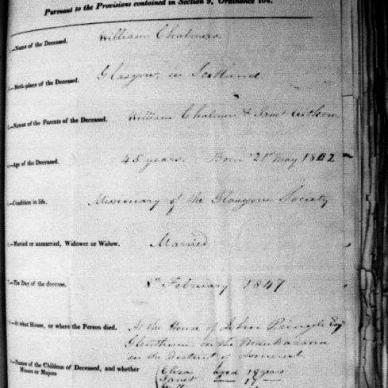 Pursuant to the Provisions contained in Section 9, Ordinance 104.
—Name of the Deceased. William Chalmers
—Birth-place of the Deceased. Glasgow in Scotland
—Names of the Parents of the Deceased. William Chalmers & Janet
—Age of the Deceased. 45 years. Born 21st May 1802
—Condition in life. Missionary of the Glasgow Society
—Married or unmarried, Widower or Widow. Married
—The Day of the decease. 8th February 1847
—At what House, or where the Person died. At the House of John Pringle Esq
Glenthorn on the Mankazana
in the District of Somerset
—Names of the Children of Deceased, and whether
Minors or Majors
Eliza aged 19 years
Janet — 17 —